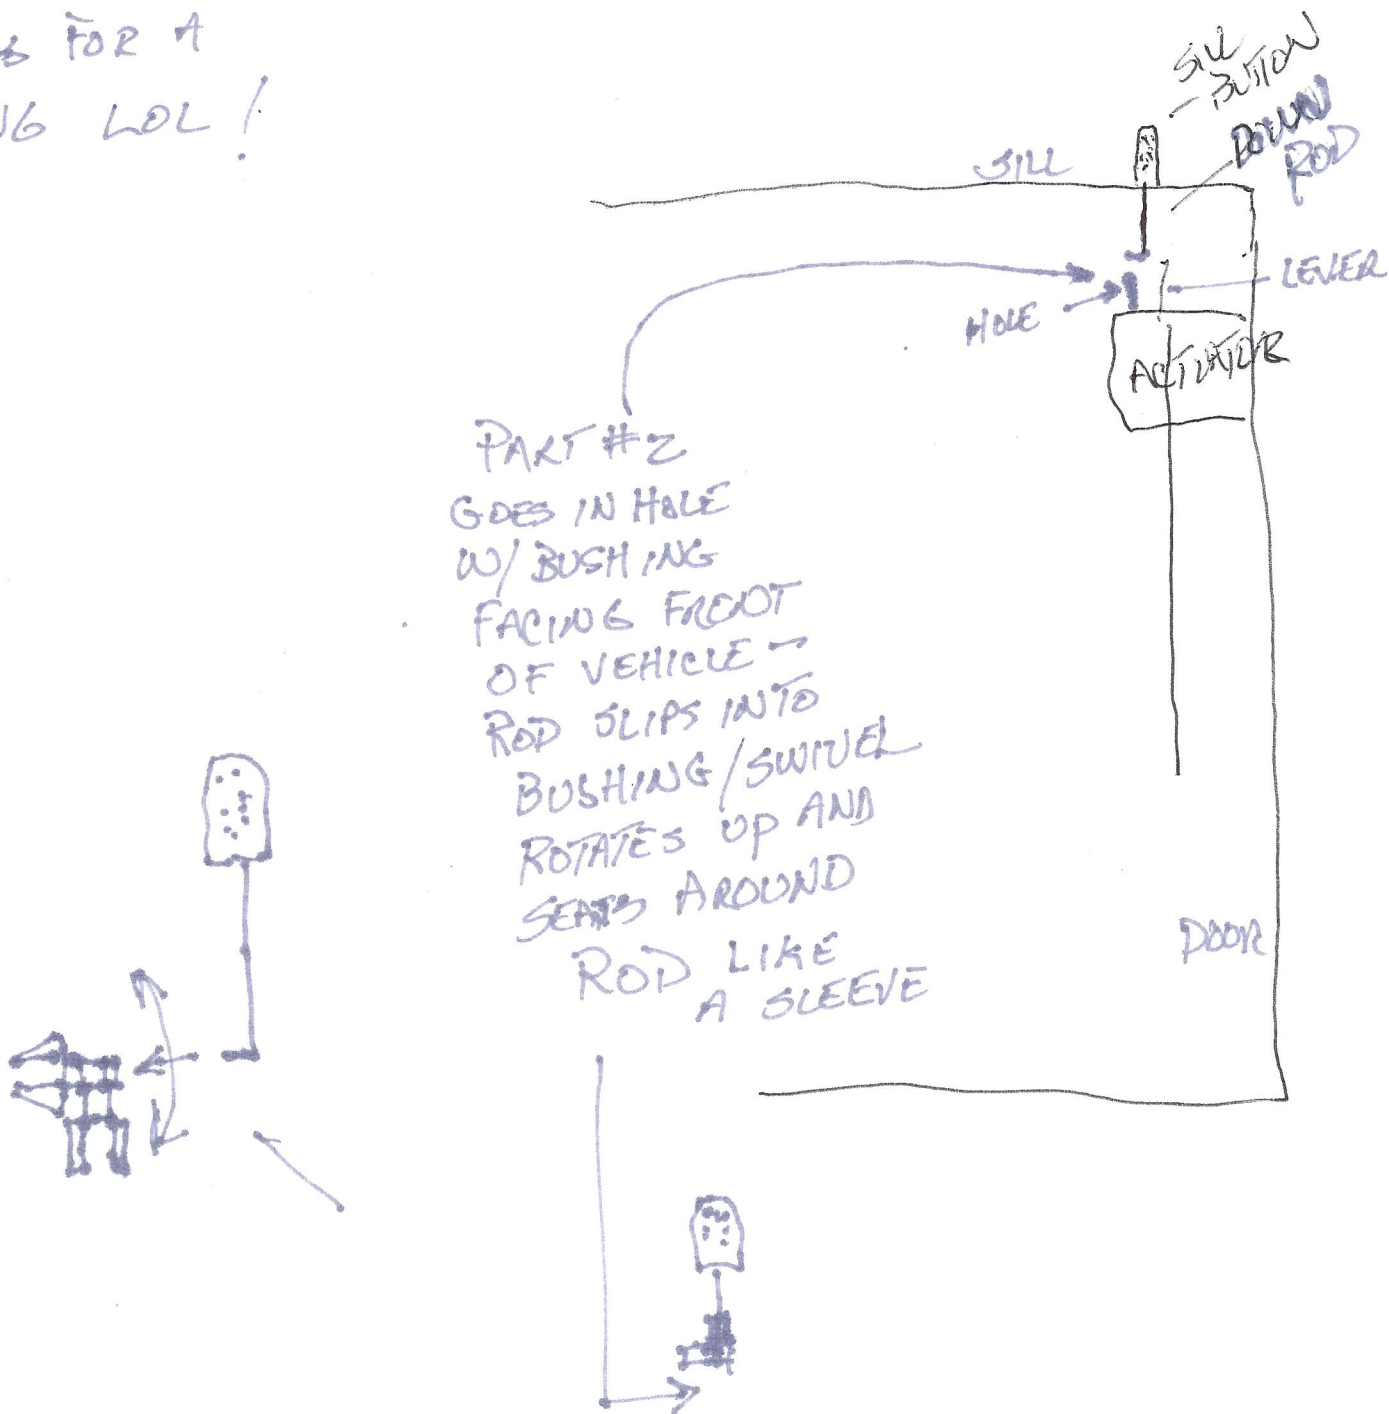 FOR A
LOL!
SILL
BUTTON
DOWN
ROD
SILL
LEVER
HOLE
ACTUATOR
PART #2
GOES IN HOLE
W/ BUSHING
FACING FRONT
OF VEHICLE -
ROD SLIPS INTO
BUSHING/SWIVEL
ROTATES UP AND
SEATS AROUND
ROD LIKE
A SLEEVE
DOOR